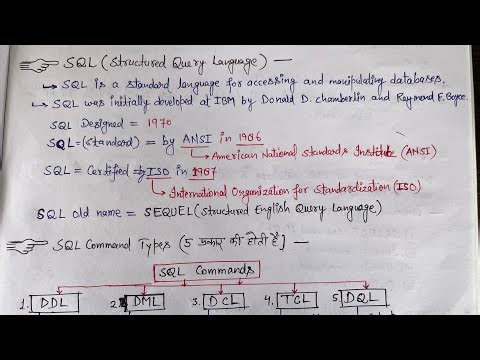 SQL (Structured Query Language) —
↳ SQL is a standard language for accessing and manipulating databases.
↳ SQL was initially developed at IBM by Donald D. chamberlin and Raymond F. Boyce.
SQL Designed = 1970
SQL=(Standard) = by ANSI in 1986
→ American National Standards Institute (ANSI)
SQL = Certified by ISO in 1987
→ International Organization for Standardization (ISO)
SQL old name = SEQUEL (Structured English Query Language)
SQL Command Types (5 प्रकार की होती है] —
SQL Commands
1. DDL 2. DML 3. DCL 4. TCL 5. DQL